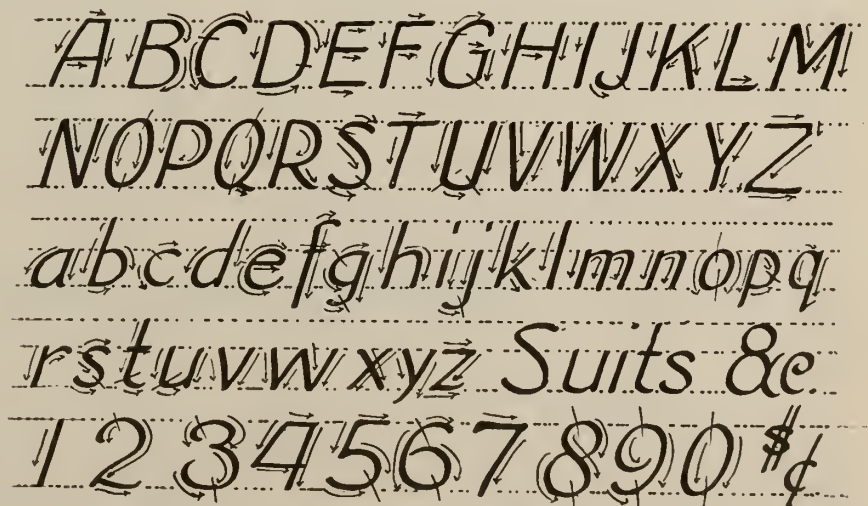 ABCDEFGHIJKLM
NOPQRSTUVWXYZ
abcdefghijklmnopq
rstuvwxyz Suits &c.
1234567890$¢